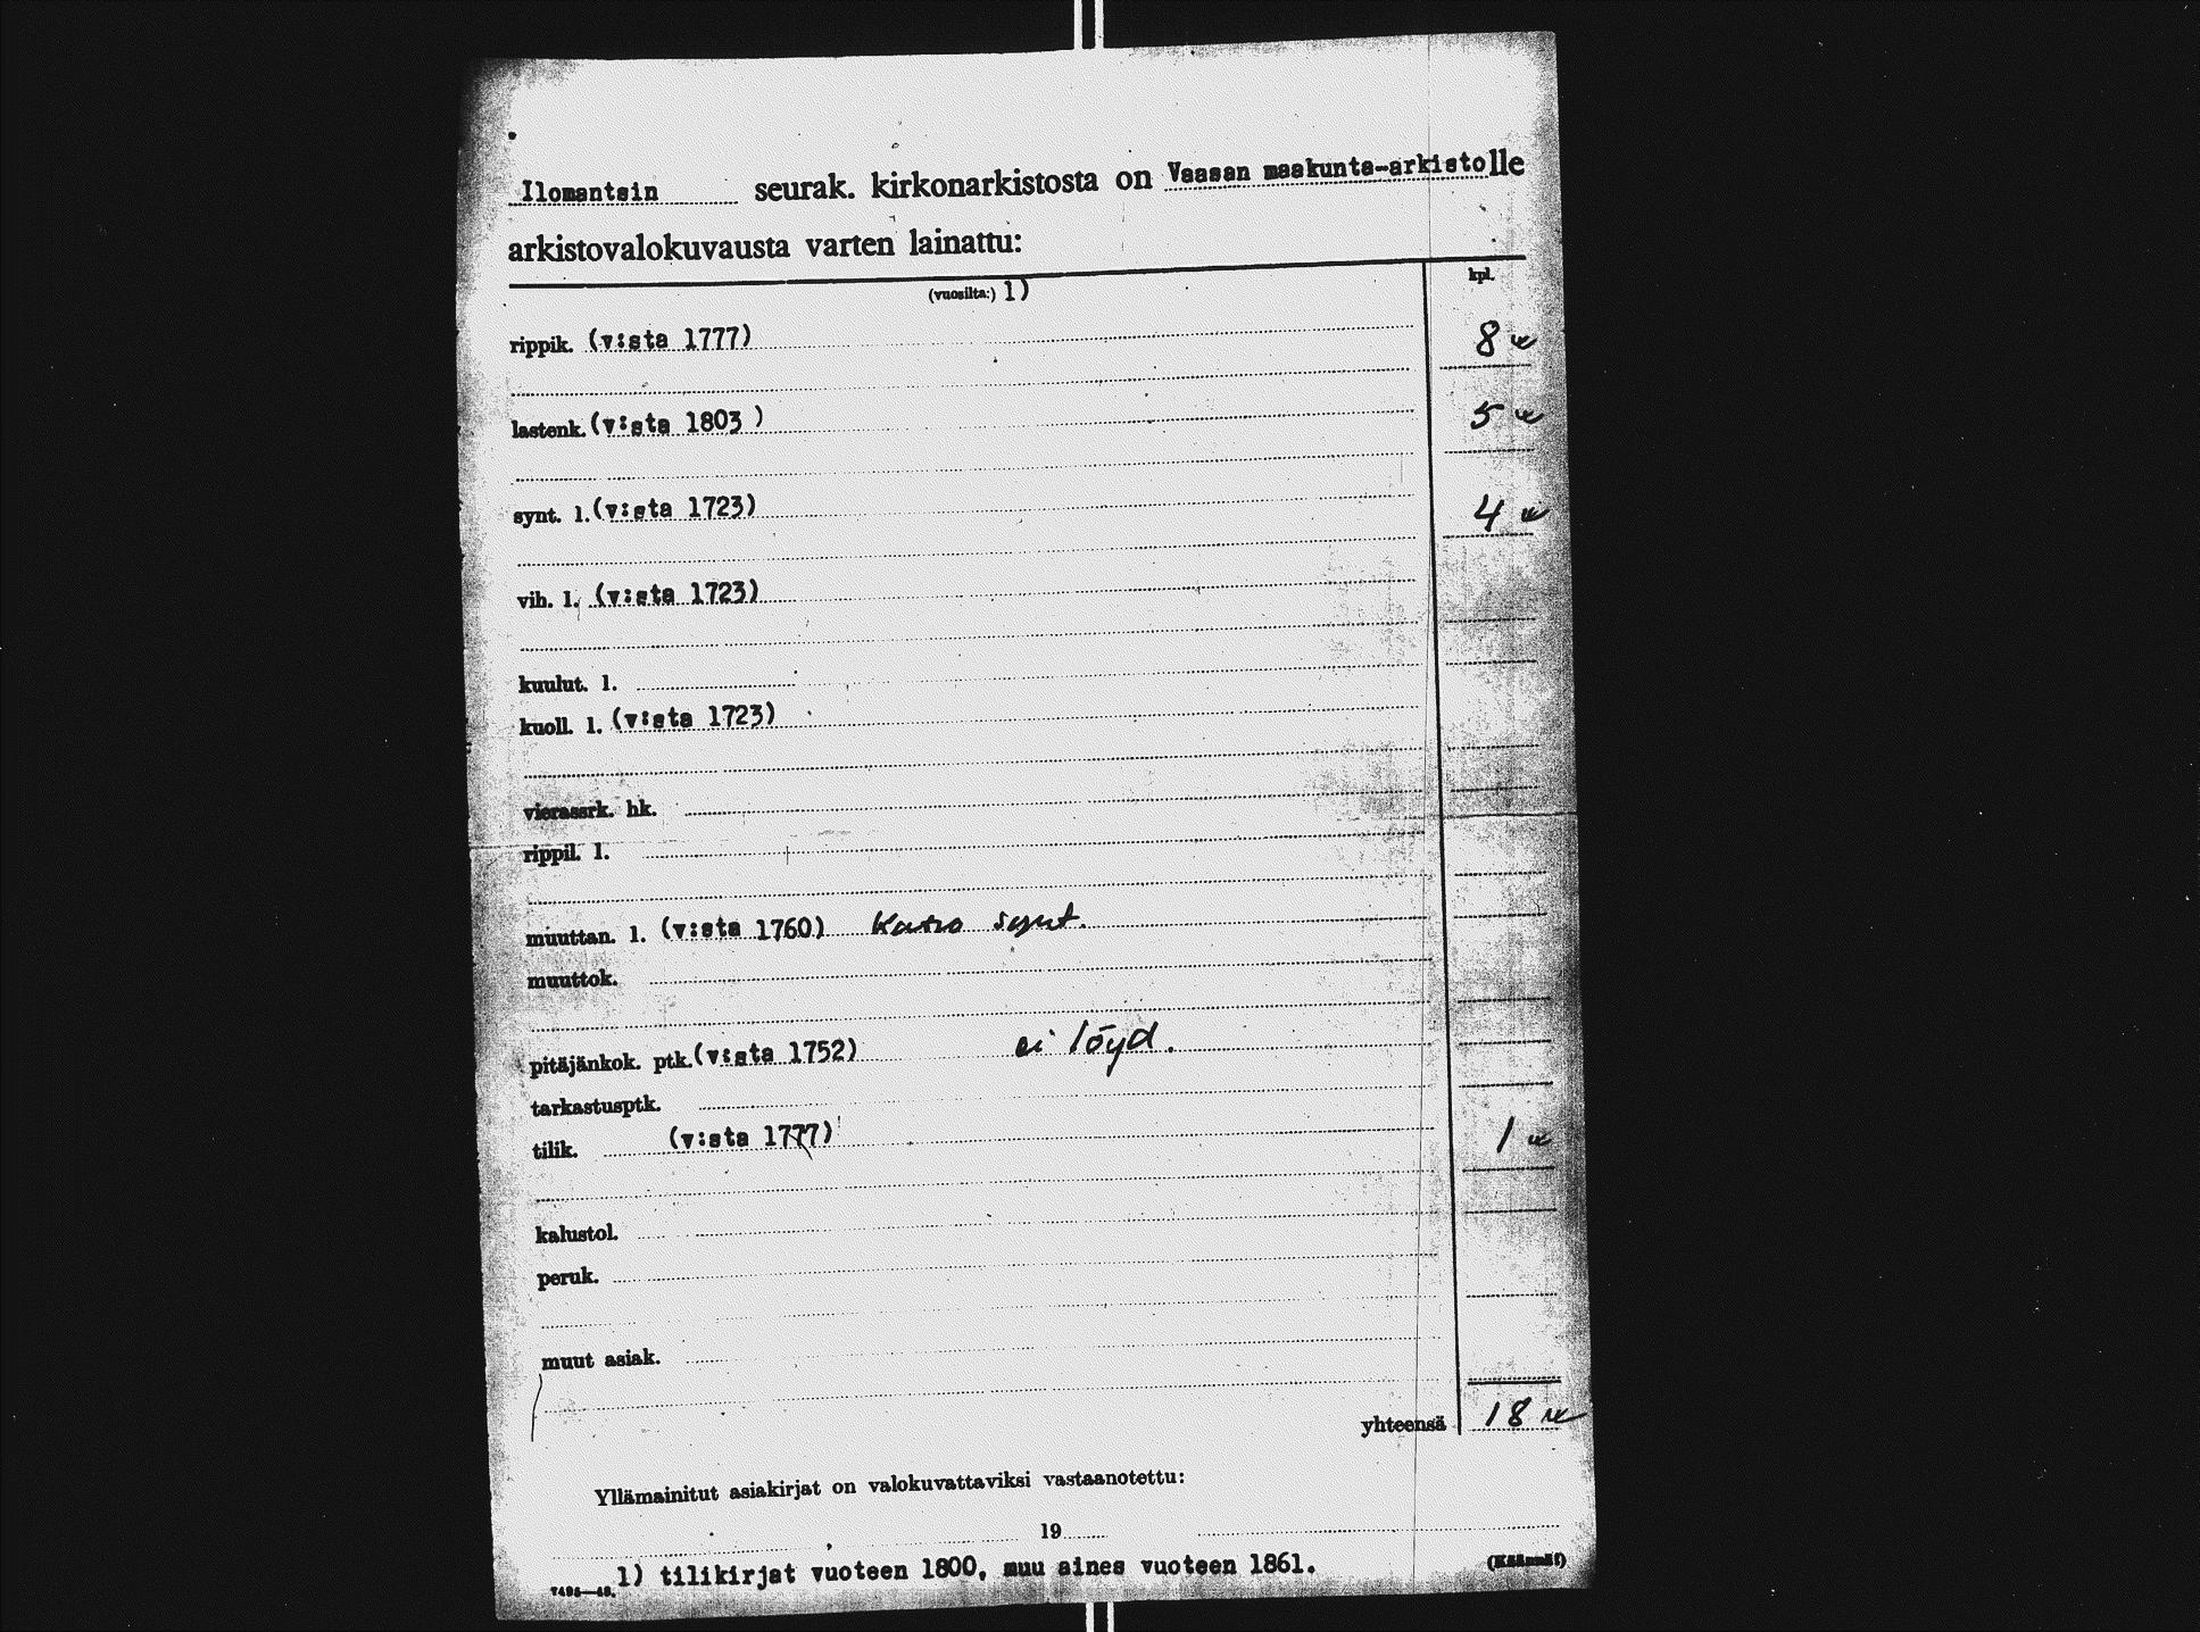 Ilomantsin seurak. kirkonarkistosta on Vaasan maakunta-arkistolle
arkistovalokuvausta varten lainattu:
(vuosilta:) 1) kpl.
rippik. (v:sta 1777) 8
lastenk. (v:sta 1803 ) 5
synt. l. (v:sta 1723) 4
vih. l. (v:sta 1723)
kuulut. l.
kuoll. l. (v:sta 1723)
vierassrk. hk.
rippil. l.
muuttan. l. (v:sta 1760) Katso synt.
muuttok.
pitäjänkok. ptk. (v:sta 1752) ei löyd.
tarkastusptk.
tilik. (v:sta 1777) 1
kalustol.
peruk.
muut asiak.
yhteensä 18
Yllämainitut asiakirjat on valokuvattaviksi vastaanotettu:
19
1) tilikirjat vuoteen 1800, muu aines vuoteen 1861. (Käännä!)